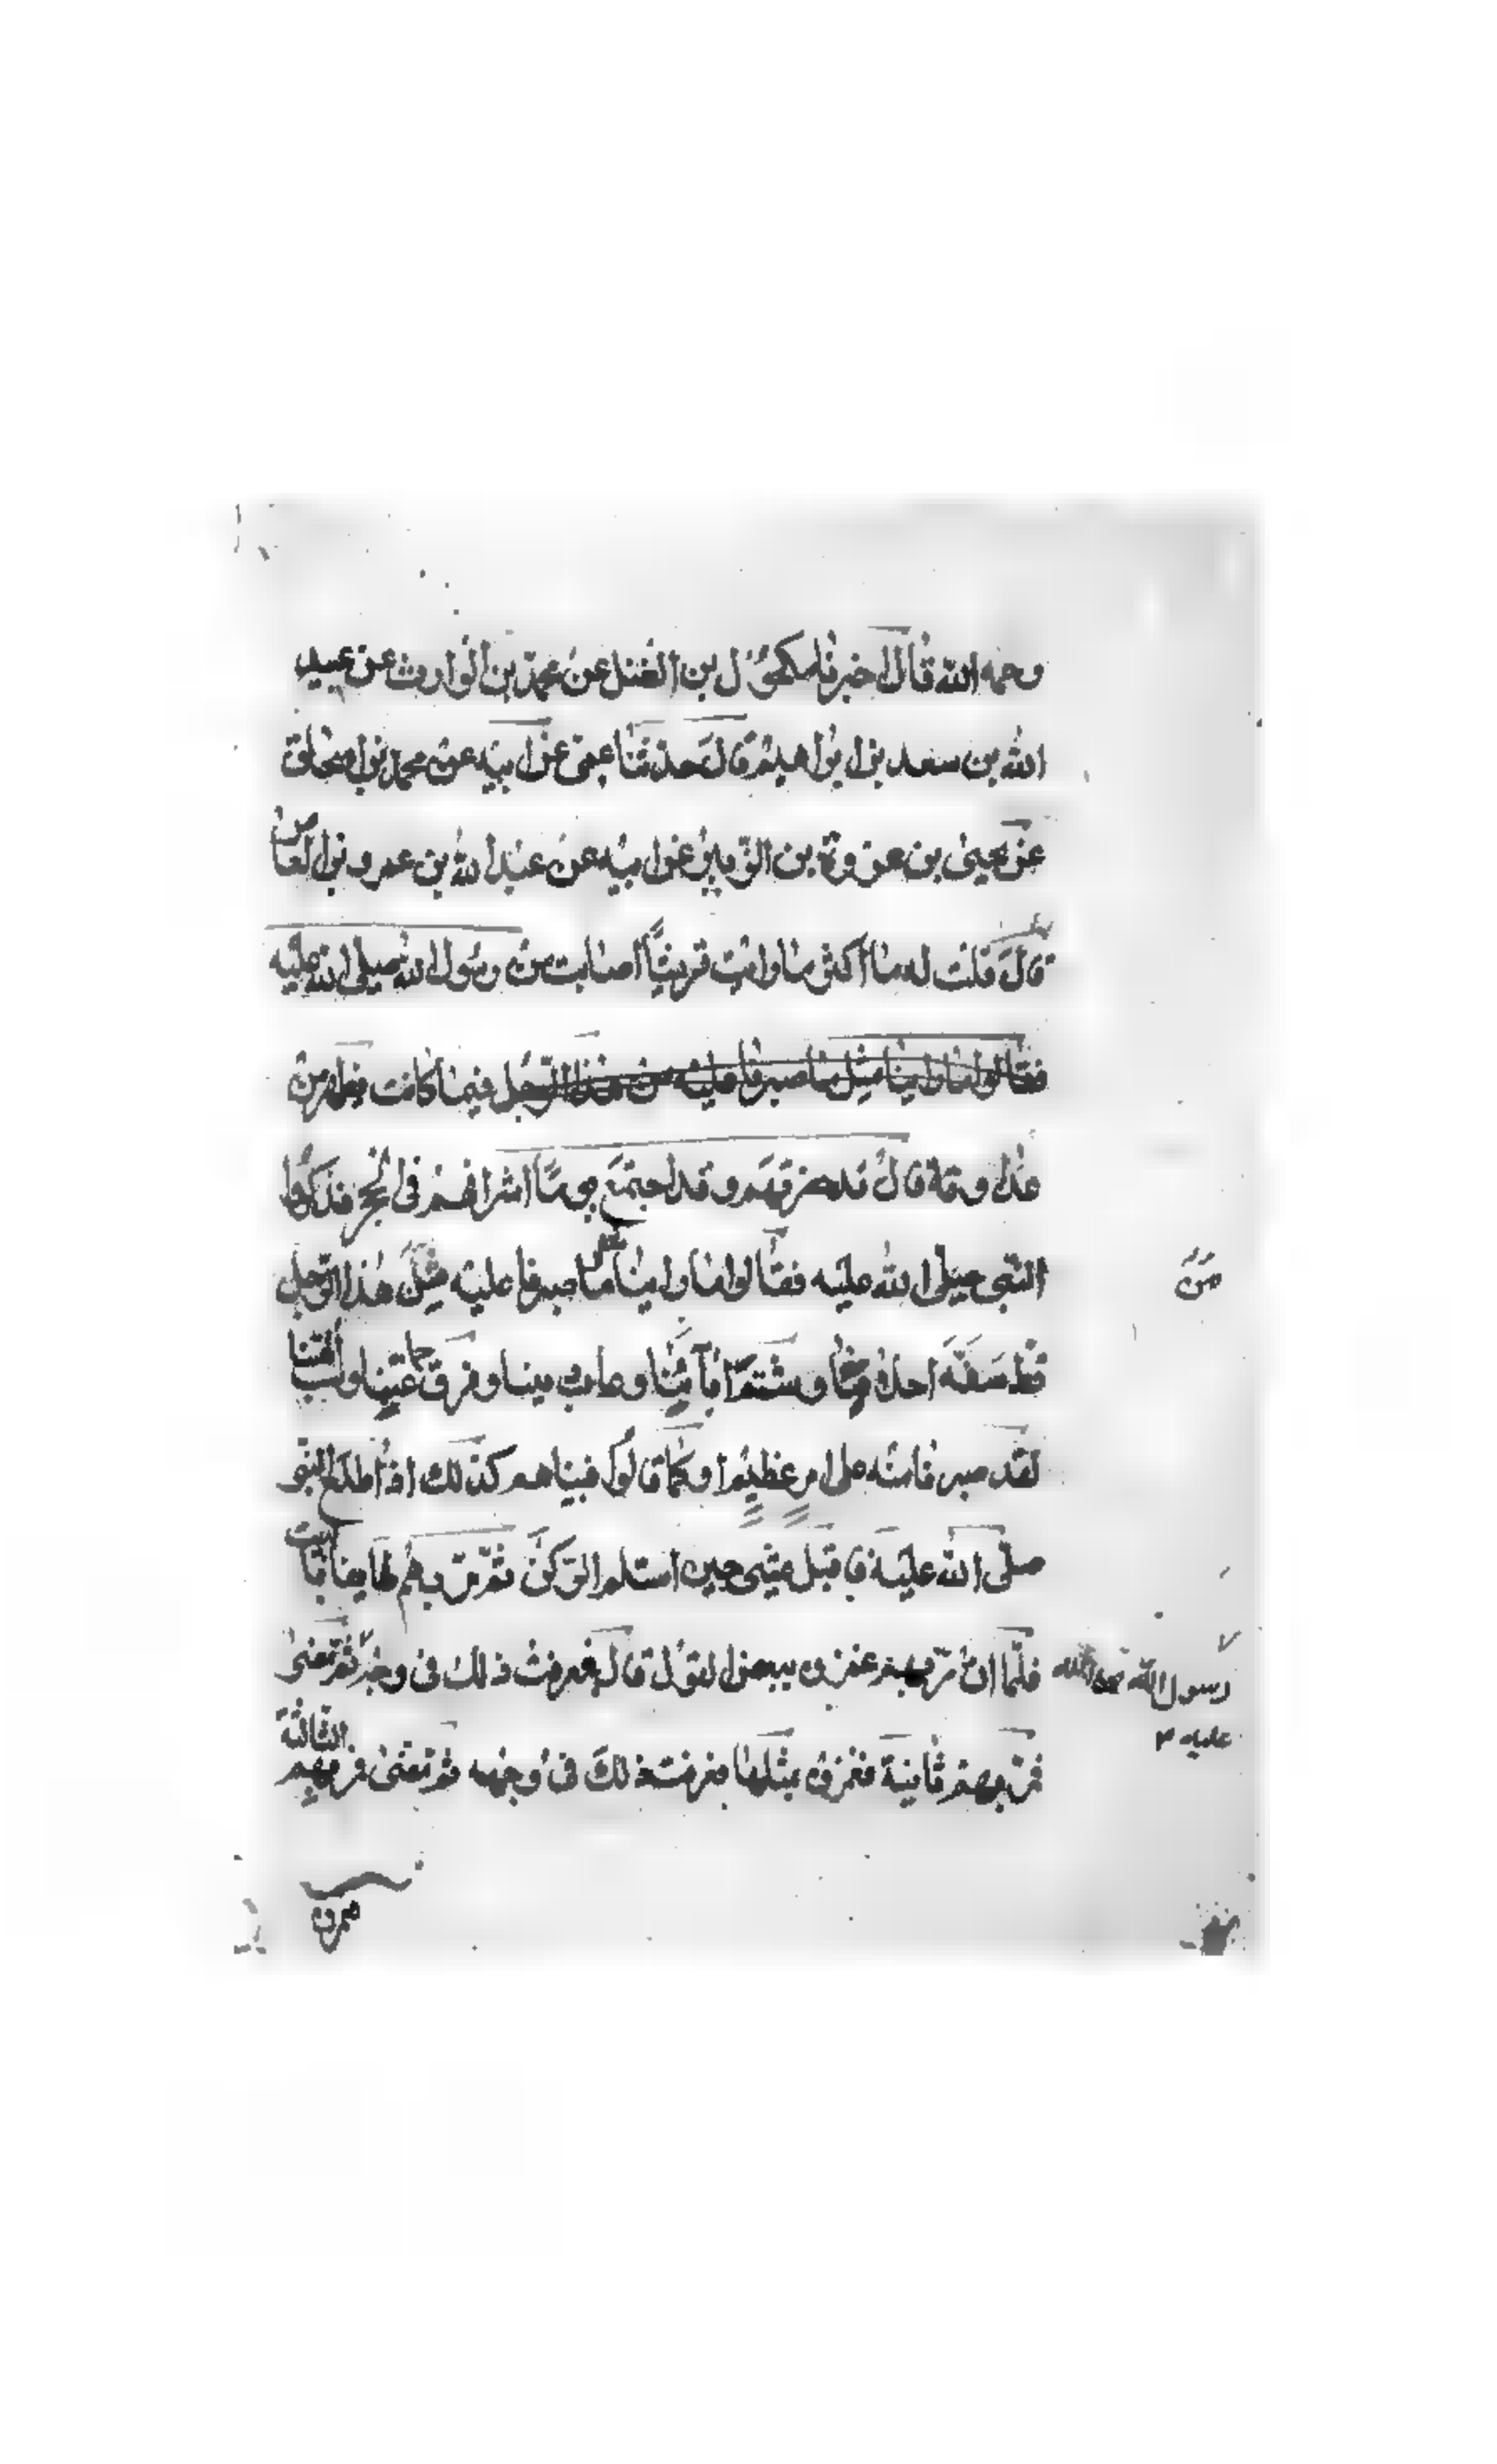 رحمه الله قال اخبرنا مكحول بن الفضل عن محمد بن الوارث عن عبيد
الله بن سعد بن ابراهيم قال حدثنا عمى عن ابيه عن محمد بن اسحاق
عن يحيى بن عروة بن الزبير عن ابيه عن عبد الله بن عمرو بن العاص
قال قلت له ما اكثر ما رايت قريشا اصابت من رسول الله صلى الله عليه
فقالوا ما راينا مثل ما صبرنا عليه من هذا الرجل فيما كانت تظهر من
عداوته قال قد حضرتهم وقد اجتمع يوما اشرافهم فى الحجر فذكروا
النبى صلى الله عليه فقالوا ما راينا مثل ما صبرنا عليه من هذا الرجل
قط سفه احلامنا وشتم اباءنا وعاب ديننا وفرق جماعتنا وسب الهتنا
لقد صبرنا منه على امر عظيم او كما قالوا فبيناهم كذلك اذ اطلع النبى
صلى الله عليه فاقبل يمشى حين استلم الركن ثم مر بهم طايفا بالبيت
فلما ان مر بهم غمزوه ببعض القول قال فعرفت ذلك فى وجه ثم مضى
رسول الله صلى الله
عليه
فمر بهم ثانية فغمزوه بمثلها فعرفت ذلك فى وجهه ثم مضى فمر بهم الثالثة